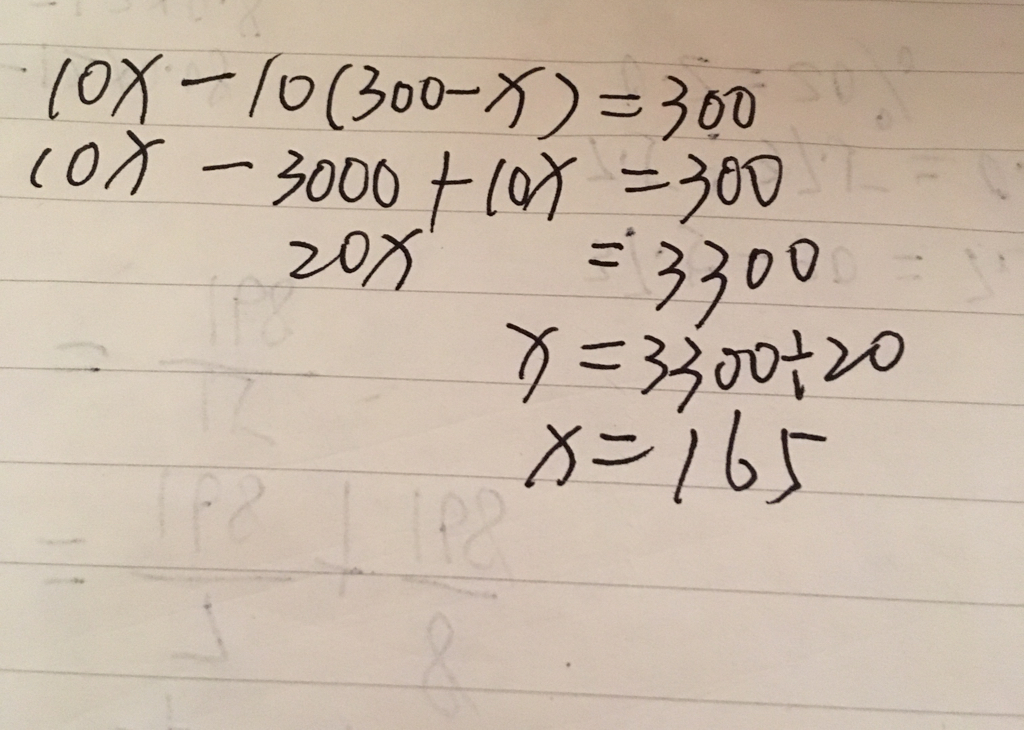 10x-10(300-x)=300
10x-3000+10x=300
20x=3300
x=3300÷20
x=165